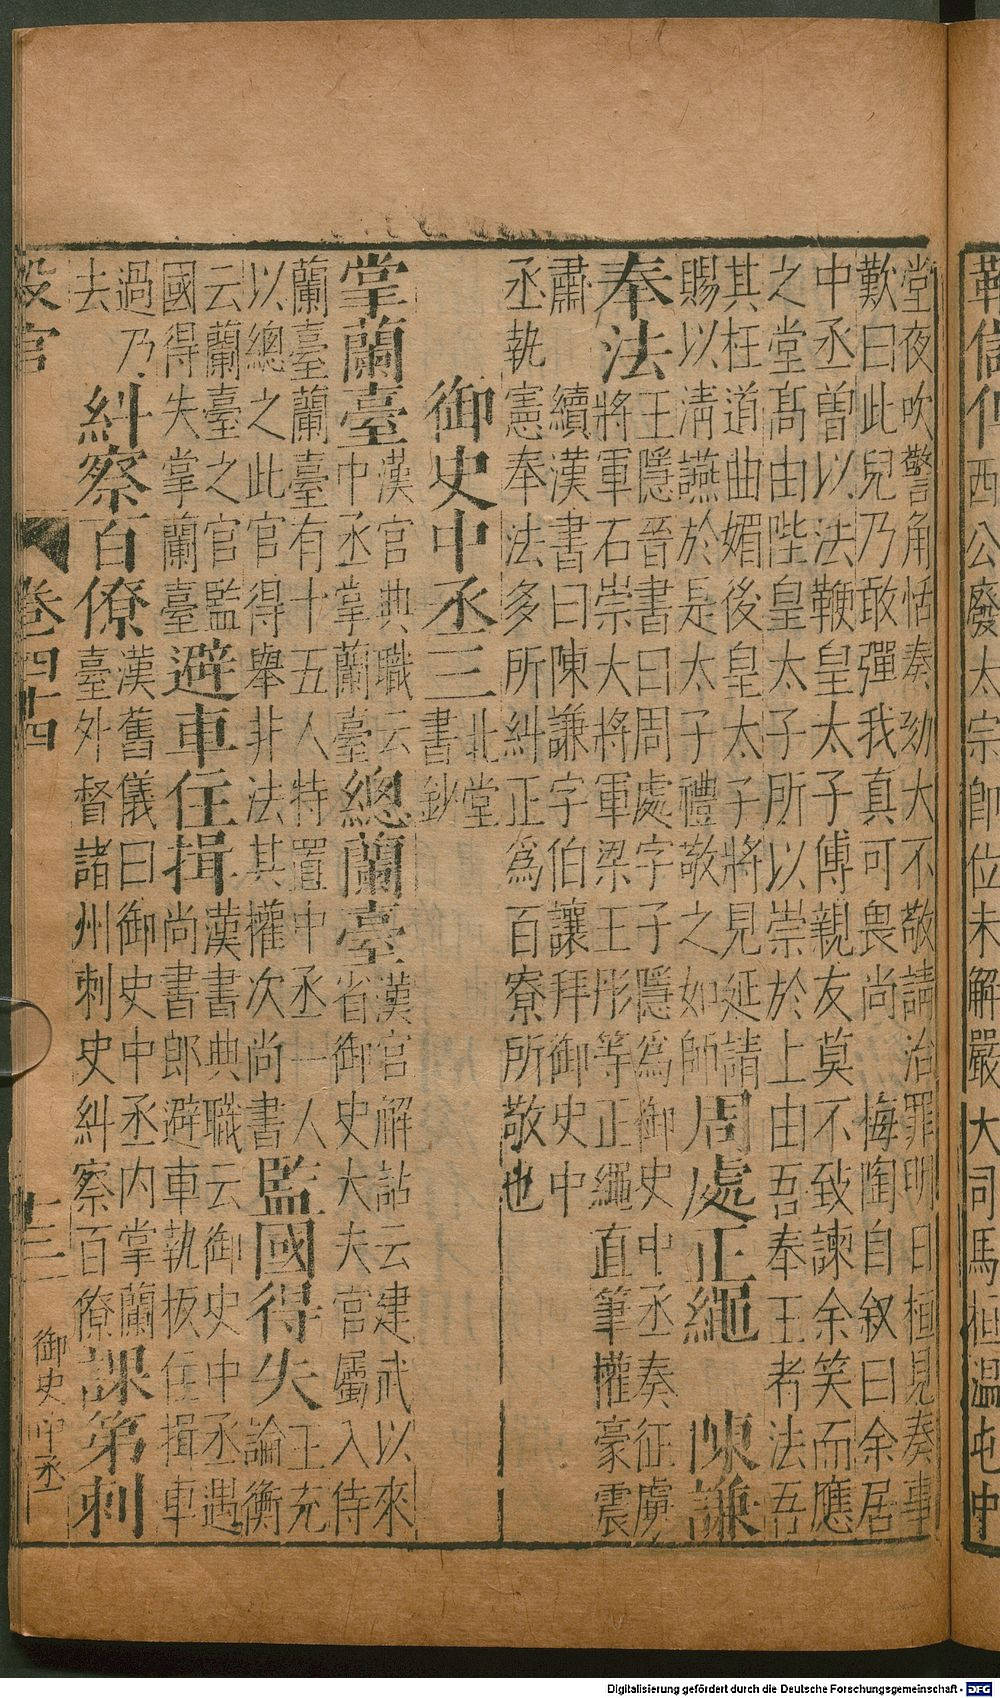 鞫儲仆西公廢太宗卽位未解嚴大司馬桓温屯中
堂夜吹警角恬奏劾大不敬請治罪明日桓見奏事
歎曰此兒乃敢彈我真可畏尚 梅陶自叙曰余居
中丞曽以法鞭皇太子傅親友莫不致諫余笑而應
之堂髙由陛皇太子所以崇於上由吾奉王者法吾
其枉道曲媚後皇太子將見延請
賜以淸讌於是太子禮敬之如師 周處正繩 陳謙
奉法 王隱晉書曰周處字子隱為御史中丞奏征虜
將軍石崇大將軍梁王彤等正繩直筆權豪震
肅 續漢書曰陳謙字伯讓拜御史中
丞執憲奉法多所糾正爲百寮所敬也
御史中丞三 北堂
書鈔
掌蘭臺 漢官典職云
中丞掌蘭臺 總蘭臺 漢官解詁云建武以來
省御史大夫官屬入侍
蘭臺蘭臺有十五人特置中丞一人
以總之此官得舉非法其權次尚書 監國得失 王充
論衡
云蘭臺之官監
國得失掌蘭臺 避車住揖 漢書典職云御史中丞遇
尚書郎避車執板住揖車
過乃
去 糾察百僚 漢舊儀曰御史中丞内掌蘭
臺外督諸州刺史糾察百僚 課第刺
設官 卷四十四 十三 御史中丞
Digitalisierung gefördert durch die Deutsche Forschungsgemeinschaft - DFG